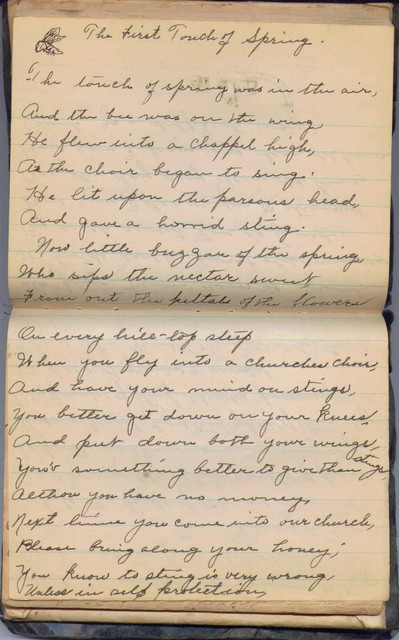 The First Touch of Spring.
The touch of spring was in the air,
And the bee was on the wing
He flew into a chappel high,
As the choir began to sing.
He lit upon the parsons head,
And gave a horrid sting.
Now little buzzar of the spring
Who sips the nectar sweet
From out the peltals of the flowers
On every hill-top steep
When you fly into a churches choir,
And have your mind on stings,
You better get down on your knees,
And put down both your wings,
You'v something better to give than stings,
Althow you have no money,
Next time you come into our church,
Please bring along your honey;
You know to sting is very wrong
Unless in self protection,